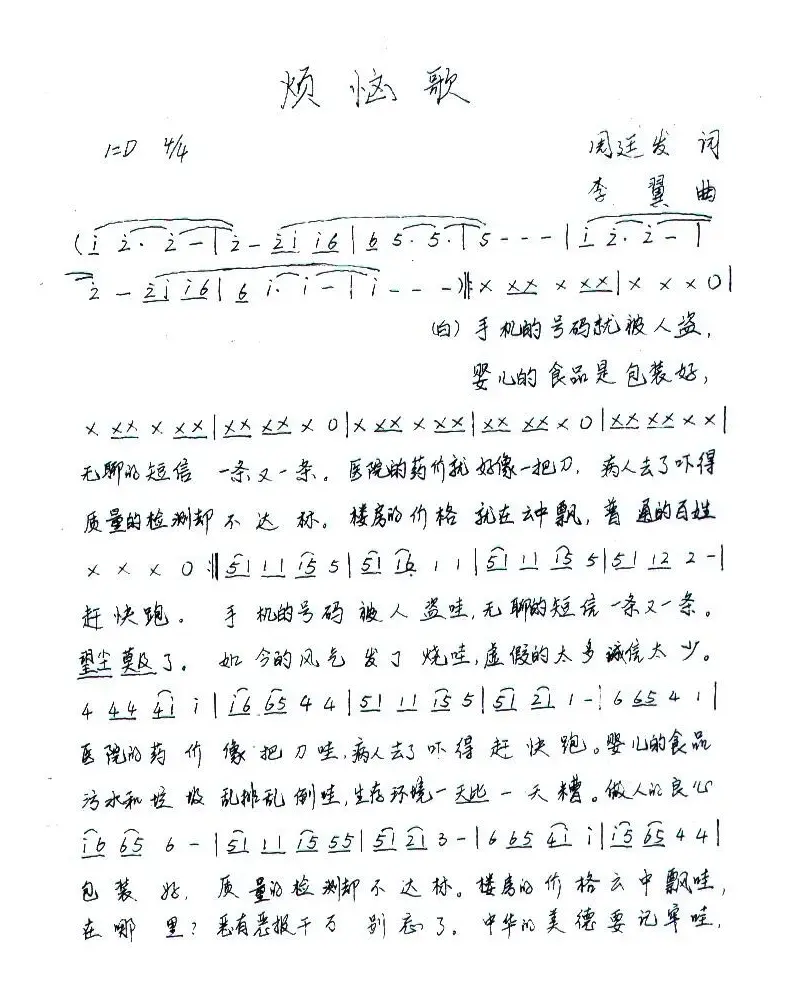 烦恼歌
1=D 4/4 周廷发 词
李翼 曲
(i 2· 2 - | 2 - 2i i6 | 6 5· 5· | 5 - - - | i 2· 2 - |
2 - 2i i6 | 6 i· i - | i - - - )‖: x xx x xx | x x x 0 |
(白) 手机的号码就被人盗,
婴儿的食品是包装好,
x xx x xx | xx xx x 0 | x xx x xx | xx xx x 0 | xx xx x x |
无聊的短信 一条又一条。医院的药价就好像一把刀, 病人去了吓得
质量的检测却不达标。楼房的价格就在云中飘, 普通的百姓
x x x 0 :‖ 51 11 15 5 | 51 16 1 1 | 51 11 15 5 | 51 12 2 - |
赶快跑。 手机的号码被人盗哇, 无聊的短信一条又一条。
望尘莫及了。 如今的风气发了烧哇, 虚假的太多诚信太少。
4 44 4i i | i6 65 4 4 | 51 11 15 5 | 51 21 1 - | 6 65 4 1 |
医院的药价像把刀哇, 病人去了吓得赶快跑。婴儿的食品
污水和垃圾乱排乱倒哇, 生存环境一天比一天糟。做人的良心
i6 65 6 - | 51 11 15 55 | 51 21 3 - | 6 65 4i i | i5 65 4 4 |
包装好, 质量的检测却不达标。楼房的价格云中飘哇,
在哪里? 恶有恶报千万别忘了。中华的美德要记牢哇,